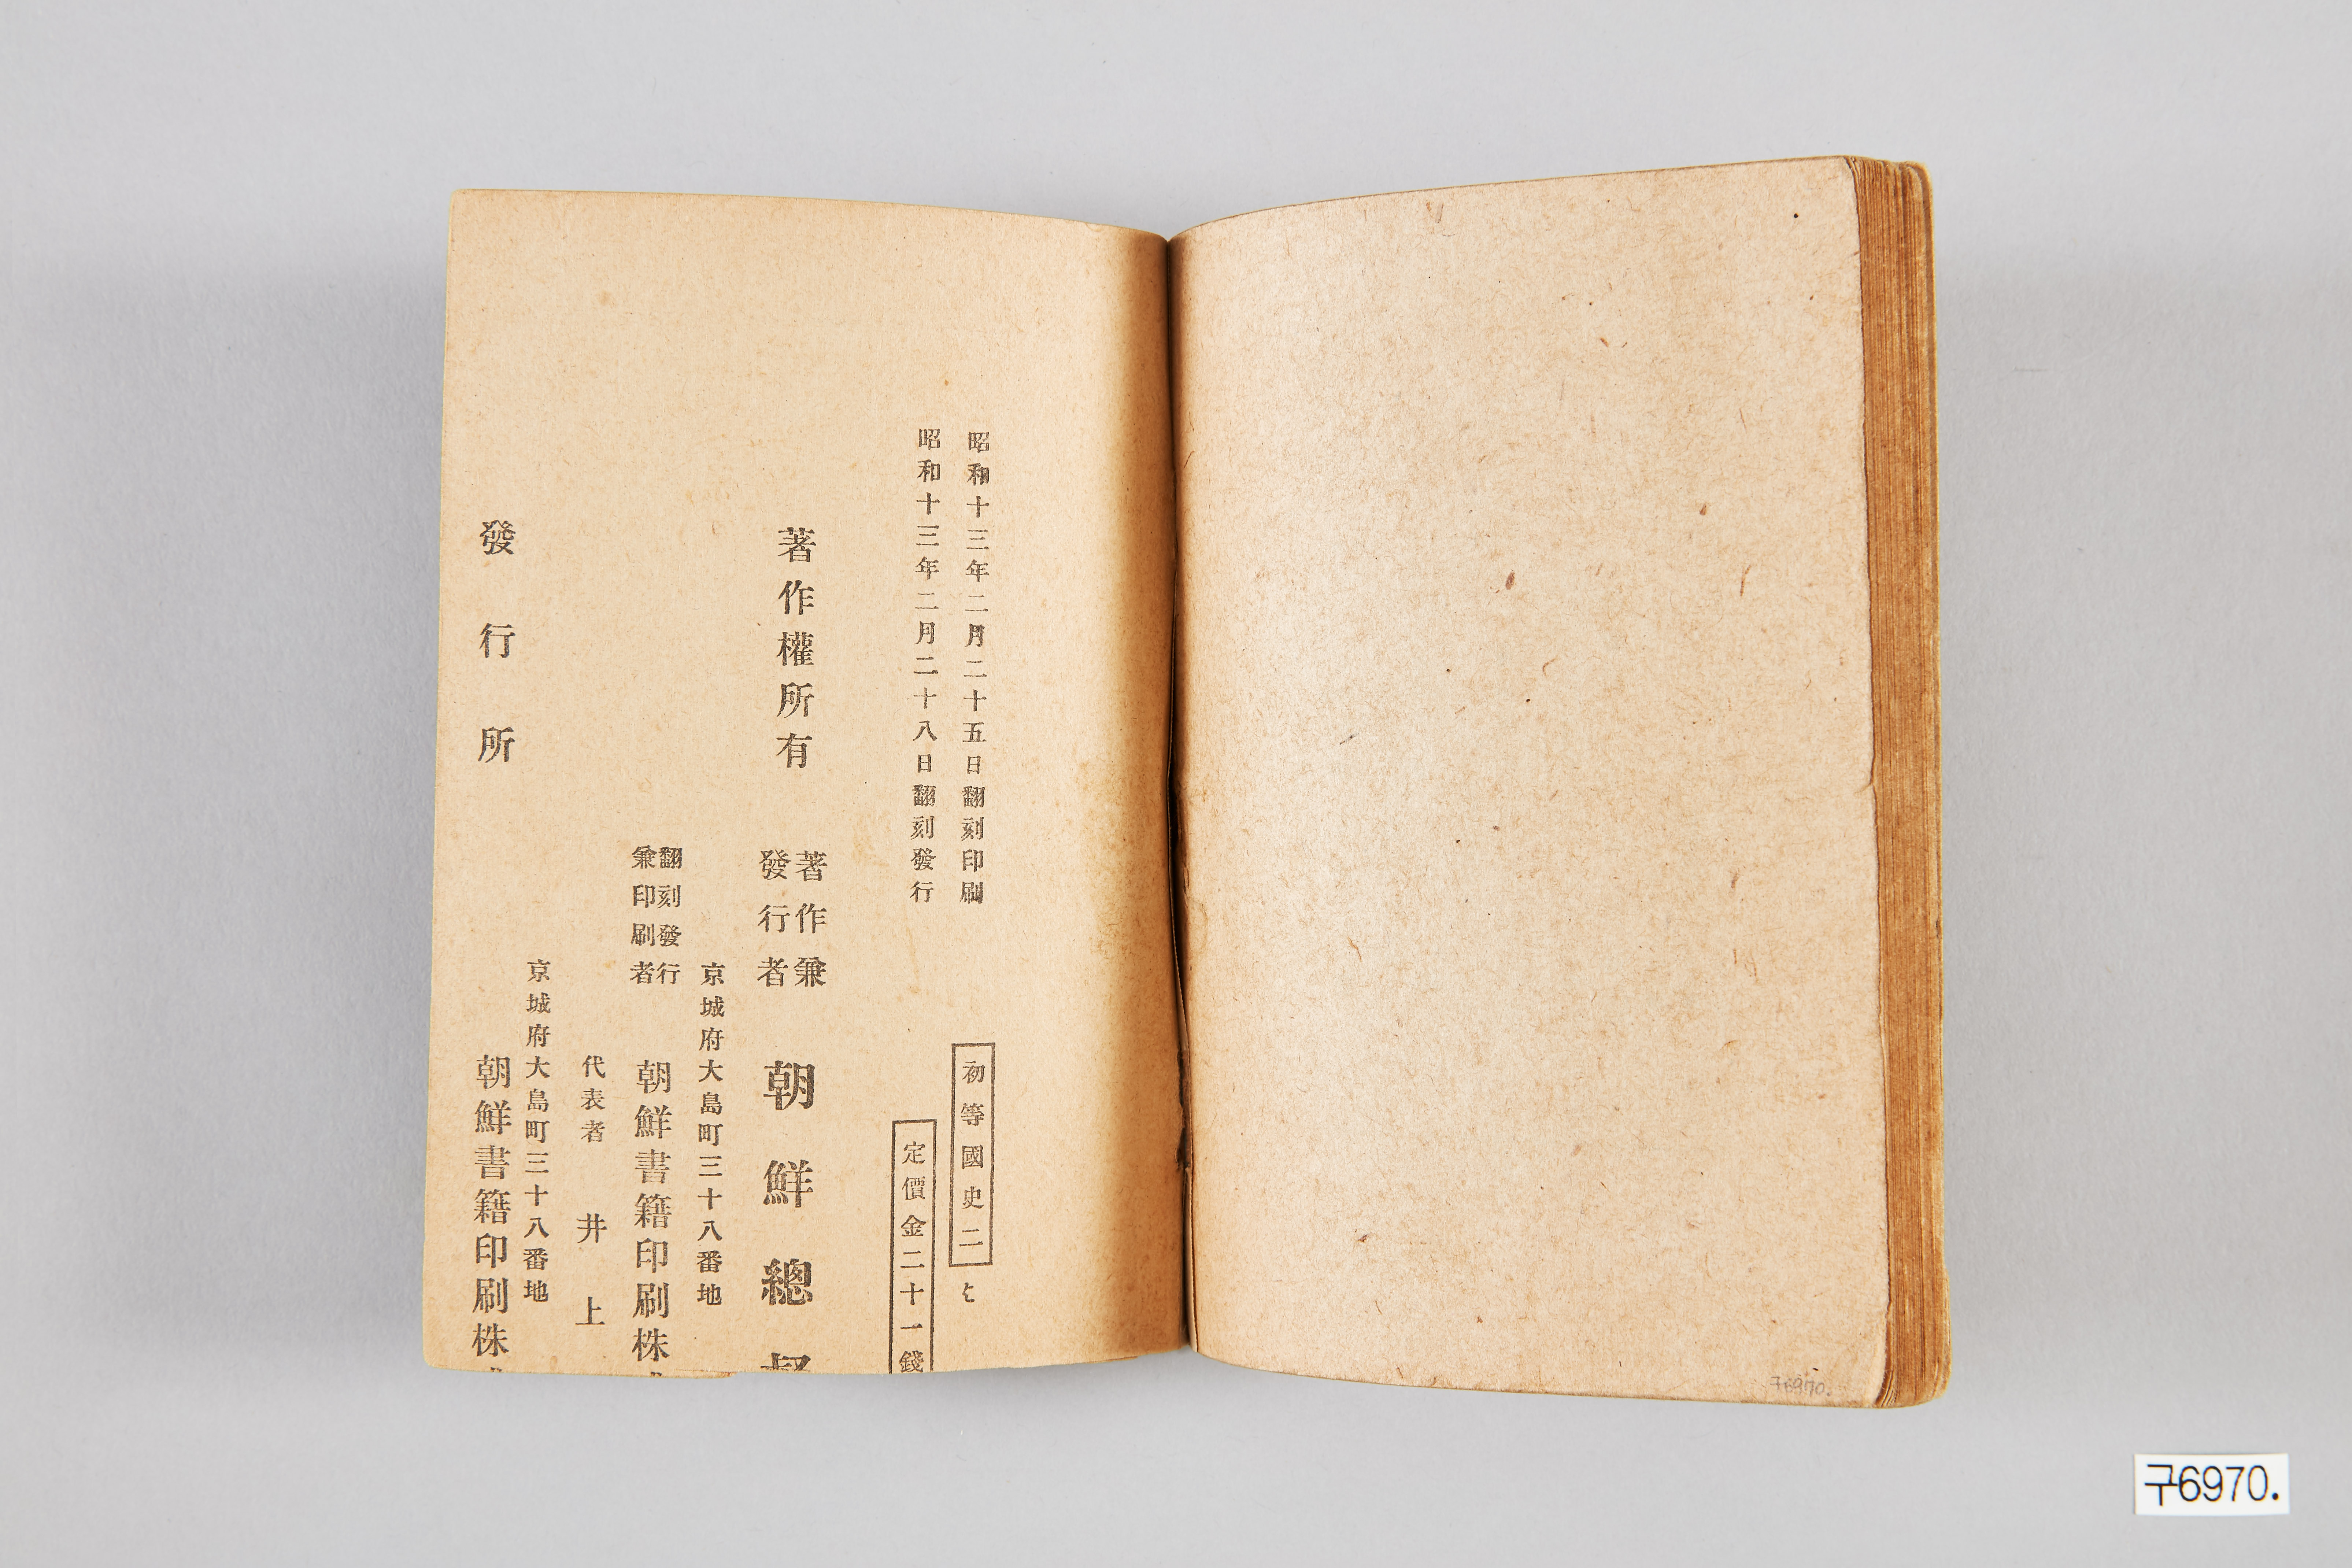 昭和十三年二月二十五日翻刻印刷
昭和十三年二月二十八日翻刻發行
初等國史二
定價金二十一錢
著作權所有
著作兼
發行者
朝鮮總督
京城府大島町三十八番地
翻刻發行
兼印刷者
朝鮮書籍印刷株
代表者 井上
京城府大島町三十八番地
發行所
朝鮮書籍印刷株
구6970.
구6970.